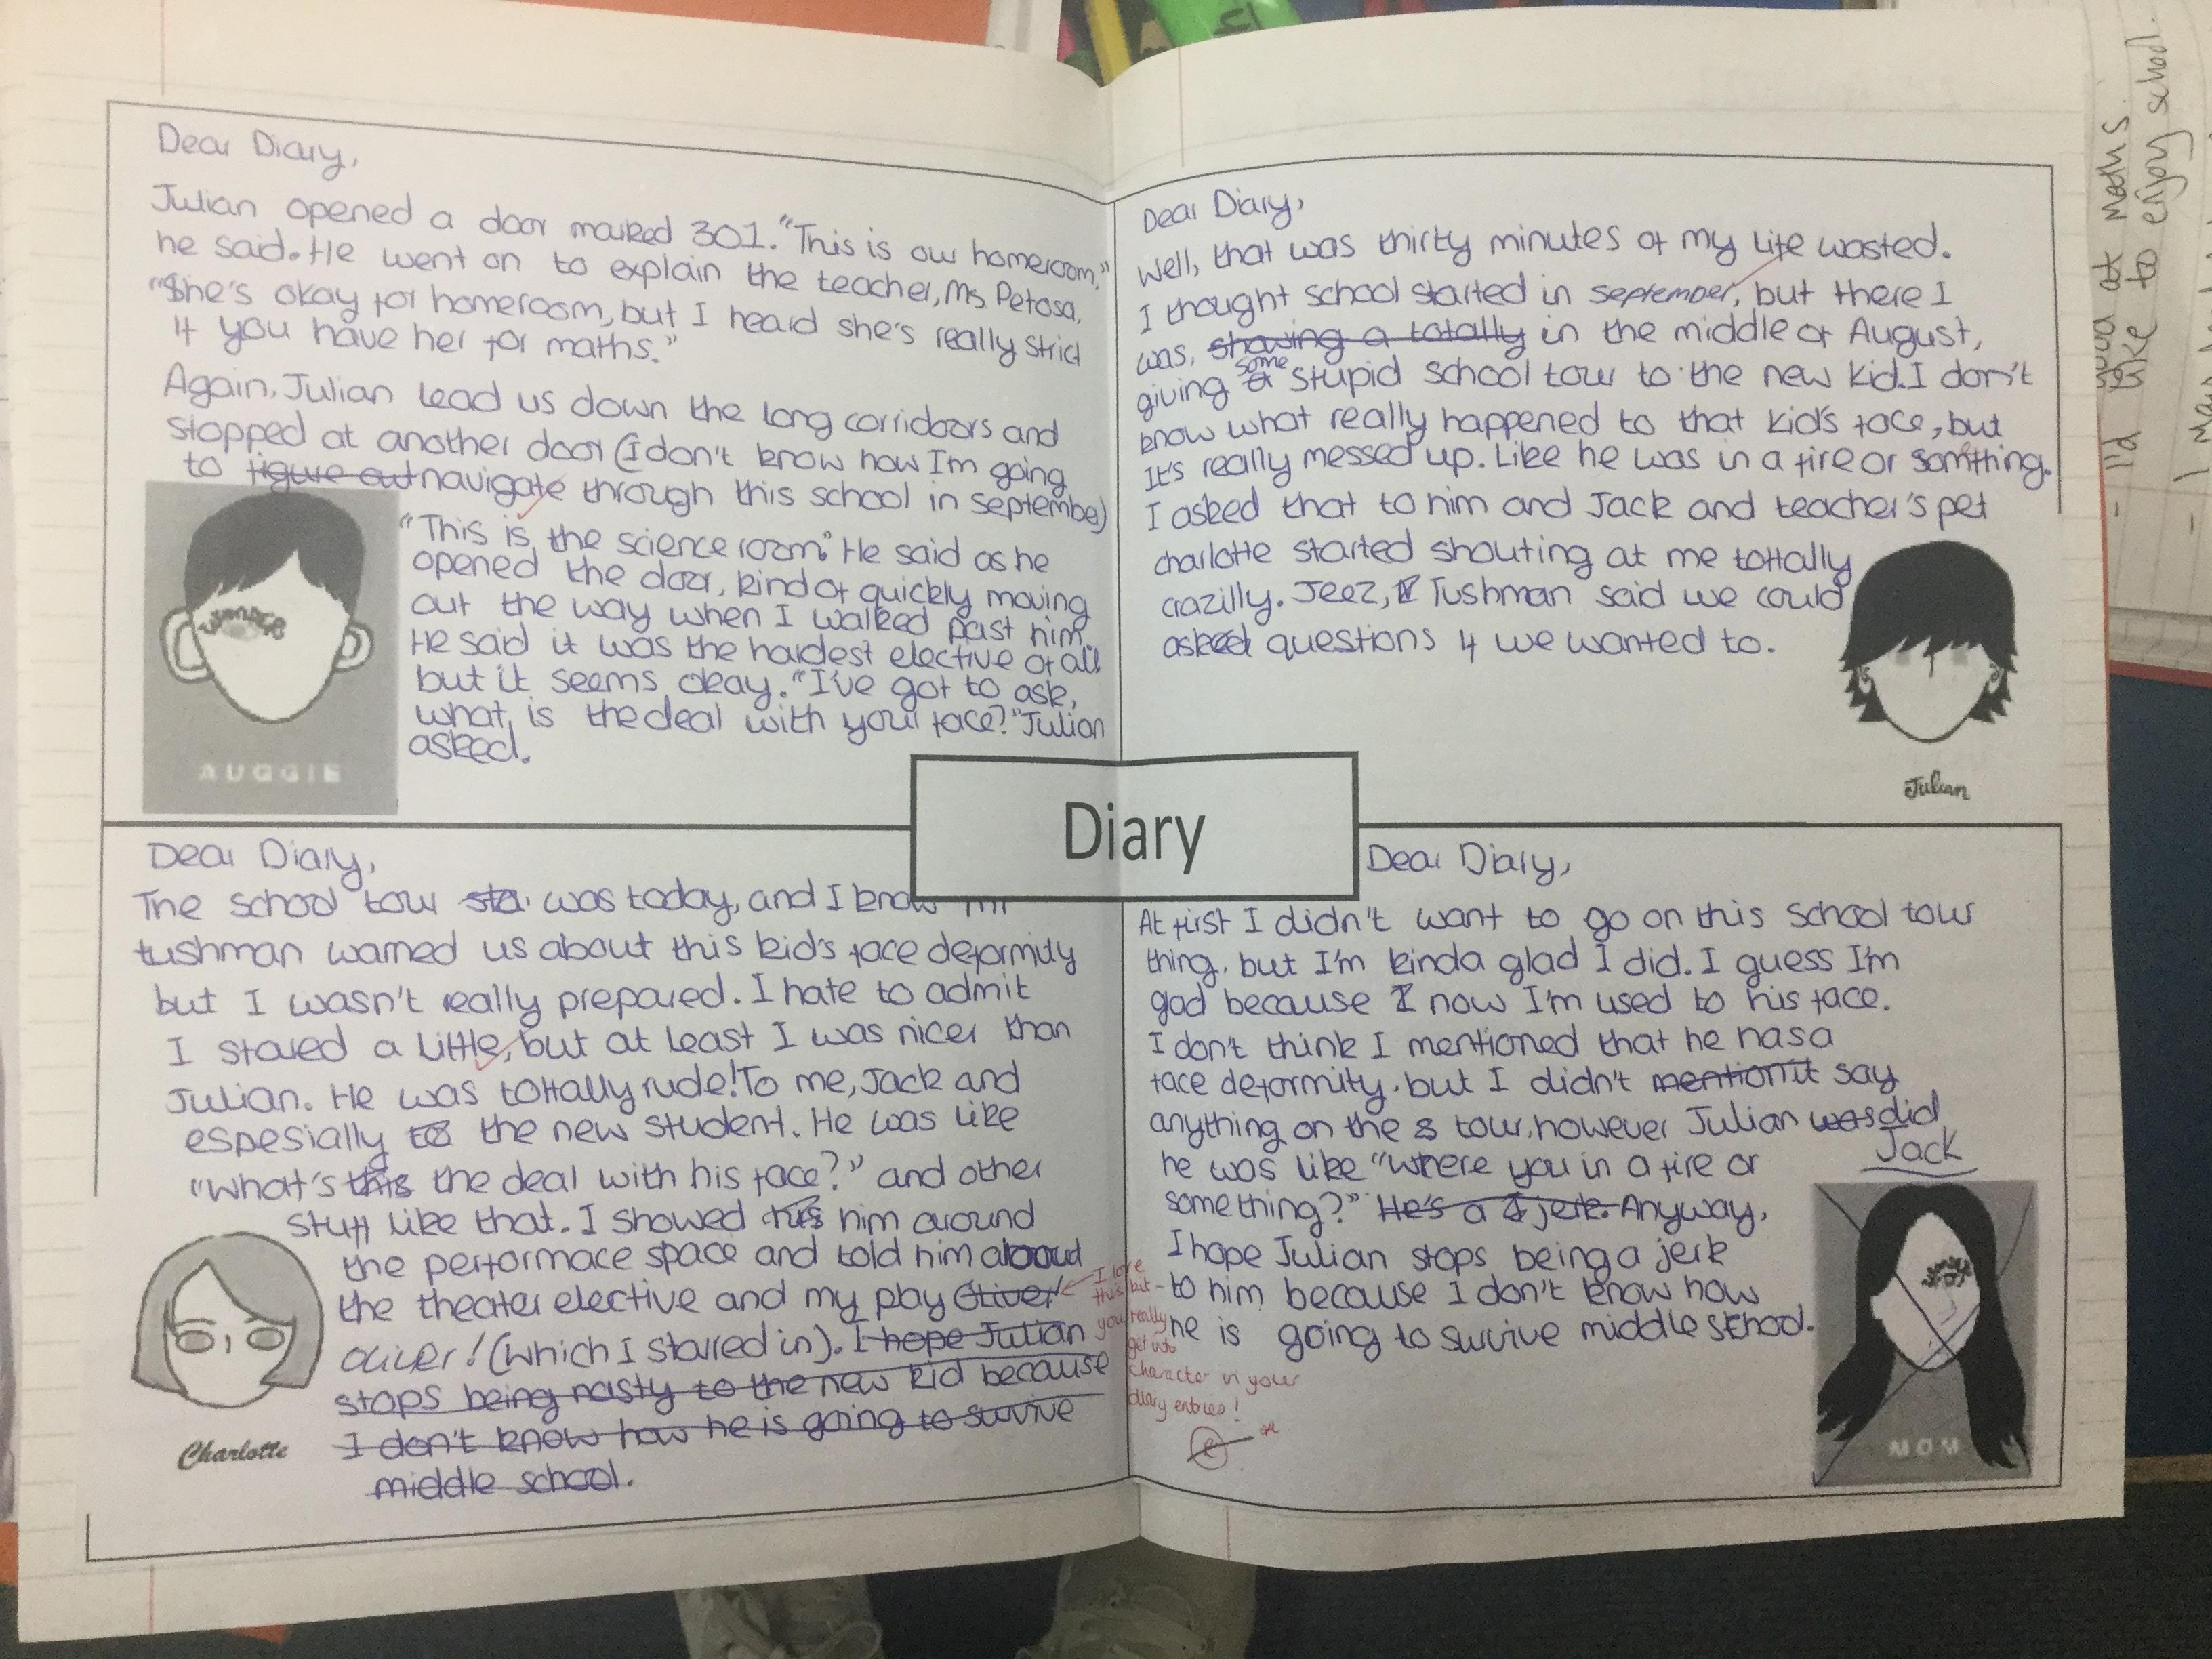 Dear Diary,
Julian opened a door marked 301. "This is our homeroom,"
he said. He went on to explain the teacher, Ms. Petosa,
"She's okay for homeroom, but I heard she's really strict
if you have her for maths."
Again, Julian lead us down the long corridoors and
stopped at another door (I don't know how I'm going
to figure out navigate through this school in September)
"This is the science room." He said as he
opened the door, kind of quickly moving
out the way when I walked past him.
He said it was the hardest elective of all
but it seems okay. "I've got to ask,
what is the deal with your face?" Julian
asked.
AUGGIE
Dear Diary,
Well, that was thirty minutes of my life wasted.
I thought school started in september, but there I
was, showing a totally in the middle of August,
giving some stupid school tour to the new kid. I don't
know what really happened to that kid's face, but
It's really messed up. Like he was in a fire or somthing.
I asked that to him and Jack and teacher's pet
charlotte started shouting at me tottally
crazilly. Jeez, Tushman said we could
asked questions if we wanted to.
Julian
Diary
Dear Diary,
The school tour sta was today, and I know mr
tushman warned us about this kid's face deformity
but I wasn't really prepared. I hate to admit
I stared a little, but at least I was nicer than
Julian. He was tottally rude! To me, Jack and
espesially to the new student. He was like
"What's this the deal with his face?" and other
stuff like that. I showed his him around
the performace space and told him about
the theater elective and my play Oliver!
oliver! (which I starred in). I hope Julian
stops being nasty to the new kid because
I don't know how he is going to survive
middle school.
Charlotte
Dear Diary,
At first I didn't want to go on this school tour
thing, but I'm kinda glad I did. I guess I'm
glad because I now I'm used to his face.
I don't think I mentioned that he has a
face deformity, but I didn't mention it say
anything on the s tour, however Julian was did
he was like "where you in a fire or
something?" He's a jerk. Anyway,
I hope Julian stops being a jerk
to him because I don't know how
he is going to survive middle school.
Jack
MOM
I love
this bit -
you really
get into
character in your
diary entries!
maths.
- I'd like to enjoy school.